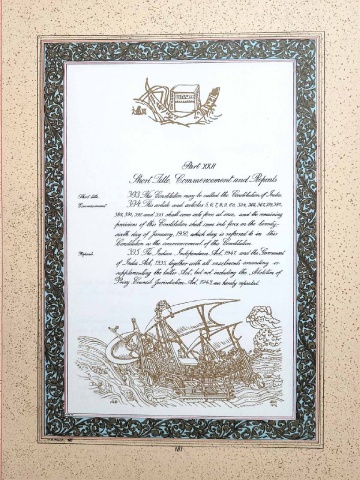 Part XXII
Short Title, Commencement and Repeals
Short title. 393. This Constitution may be called the Constitution of India.
Commencement. 394. This article and articles 5, 6, 7, 8, 9, 60, 324, 366, 367, 379, 380,
388, 391, 392 and 393 shall come into force at once, and the remaining
provisions of this Constitution shall come into force on the twenty-
sixth day of January, 1950, which day is referred to in this
Constitution as the commencement of this Constitution.
Repeals. 395. The Indian Independence Act, 1947, and the Government
of India Act, 1935, together with all enactments amending or
supplementing the latter Act, but not including the Abolition of
Privy Council Jurisdiction Act, 1949, are hereby repealed.